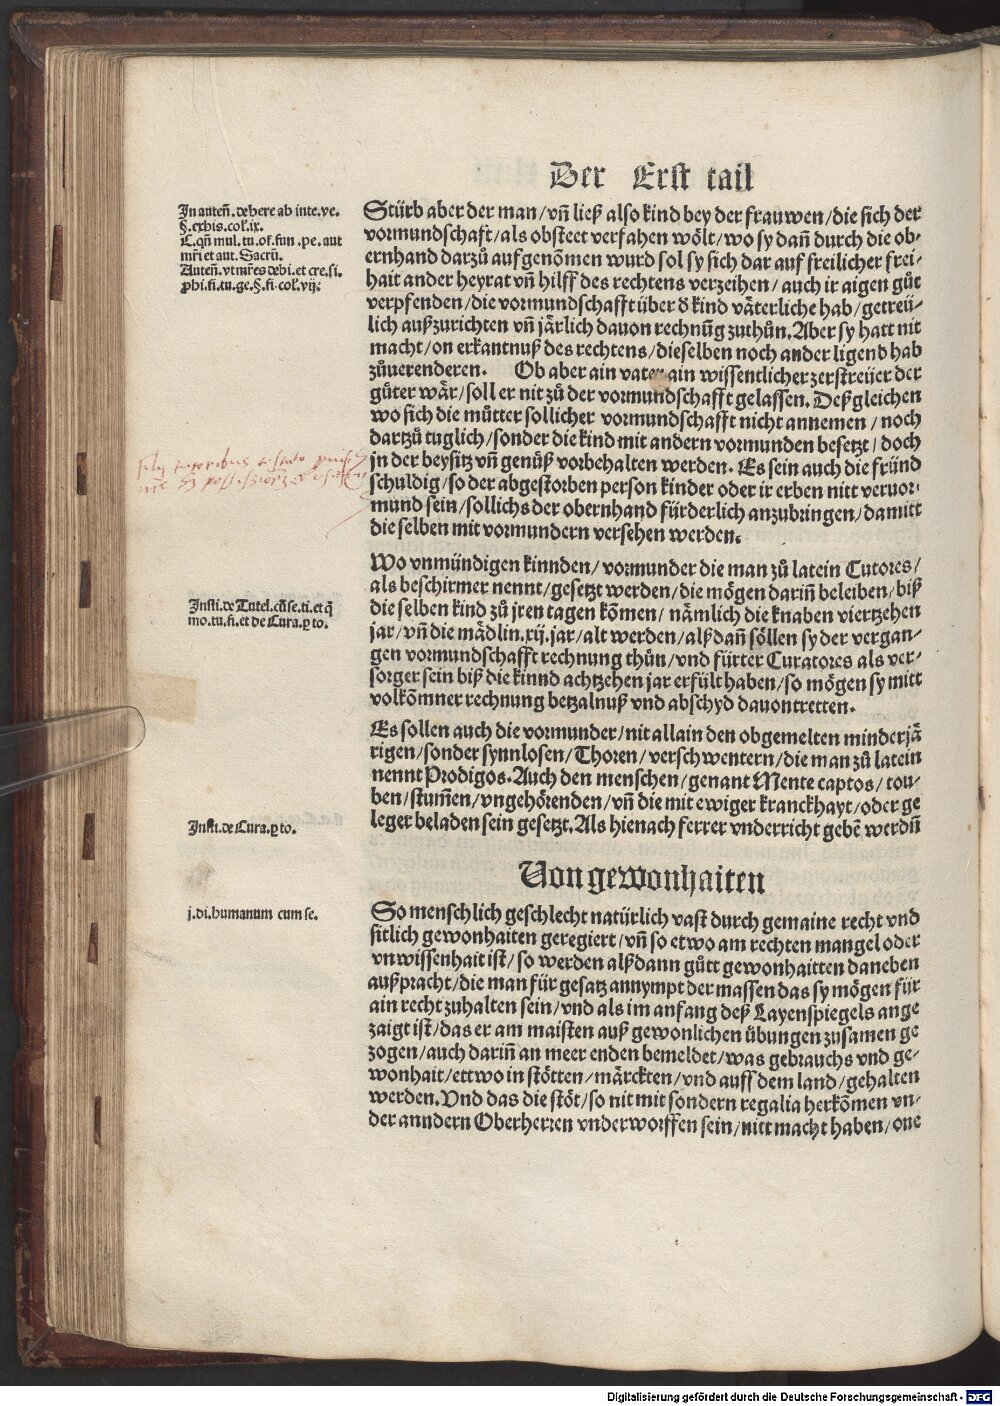 Der Erst tail
In auteñ. de here ab inte. ve.
§. exhis. col. ix.
C. qñ mul. tu. of. fun. pe. aut
mr̃i et aut. Sacrũ.
Auteñ. vt mr̃es debi. et cre. si.
ꝓhi. fi. tu. ge. §. fi. col. vij.
Stürb aber der man / vñ ließ also kind bey der frauwen / die sich der
vormundschaft / als obsteet verfahen wölt / wo sy dañ durch die ob⸗
ernhand darzů aufgenõmen wurd sol sy sich dar auf freilicher frei⸗
hait ander heyrat vñ hilff des rechtens verzeihen / auch ir aigen gůt
verpfenden / die vormundschafft über d kind väterliche hab / getreü⸗
lich außzurichten vñ järlich dauon rechnũg zuthůn. Aber sy hatt nit
macht / on erkantnuß des rechtens / dieselben noch ander ligend hab
zůuerenderen. Ob aber ain vater ain wissentlicher zerstreüer der
güter wär / soll er nit zů der vormundschafft gelassen. Deßgleichen
wo sich die můtter sollicher vormundschafft nicht annemen / noch
dartzů tuglich / sonder die kind mit andern vormunden besetzt / doch
jn der beysitz vñ genüß vorbehalten werden. Es sein auch die fründ
schuldig / so der abgestorben person kinder oder ir erben nitt veruor⸗
mund sein / sollichs der obernhand fürderlich anzubringen / damitt
die selben mit vormundern versehen werden.
Insti. de Tutel. cũ se. ti. et q̃
mo. tu. fi. et de Cura. ꝑ to.
Wo vnmündigen kinnden / vormunder die man zů latein Tutores /
als beschirmer nennt / gesetzt werden / die mögen dariñ beleiben / biß
die selben kind zů jren tagen kõmen / nämlich die knaben viertzehen
jar / vñ die mädlin. xij. jar / alt werden / alß dañ söllen sy der vergan⸗
gen vormundschafft rechnung thůn / vnd fürter Curatores als ver⸗
sorger sein biß die kinnd achtzehen jar erfült haben / so mögen sy mitt
volkõmner rechnung betzalnuß vnd abschyd dauon tretten.
Es sollen auch die vormunder / nit allain den obgemelten minderjä
rigen / sonder synnlosen / Thoren / verschwentern / die man zů latein
nennt Prodigos. Auch den menschen / genant Mente captos / tou⸗
ben / stum̃en / vngehörenden / vñ die mit ewiger kranckhayt / oder ge
leger beladen sein gesetzt. Als hienach ferrer vnderricht gebẽ werdñ
Insti. de Cura. ꝑ to.
Von gewonhaiten
j. di. humanum cum se.
So menschlich geschlecht natürlich vast durch gemaine recht vnd
sitlich gewonhaiten geregiert / vñ so etwo am rechten mangel oder
vnwissenhait ist / so werden alßdann gůtt gewonhaitten daneben
außpracht / die man für gesatz annympt der massen das sy mögen für
ain recht zuhalten sein / vnd als im anfang deß Layenspiegels ange
zaigt ist / das er am maisten auß gewonlichen übungen zusamen ge
zogen / auch dariñ an meer enden bemeldet / was gebrauchs vnd ge⸗
wonhait / ettwo in stötten / märckten / vnd auff dem land / gehalten
werden. Vnd das die stöt / so nit mit sondern regalia herkõmen vn⸗
der anndern Oberherren vnderworffen sein / nitt macht haben / one
Digitalisierung gefördert durch die Deutsche Forschungsgemeinschaft - DFG